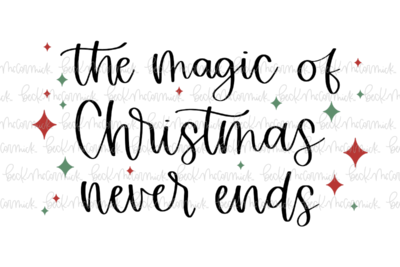 the magic of
Christmas
never ends